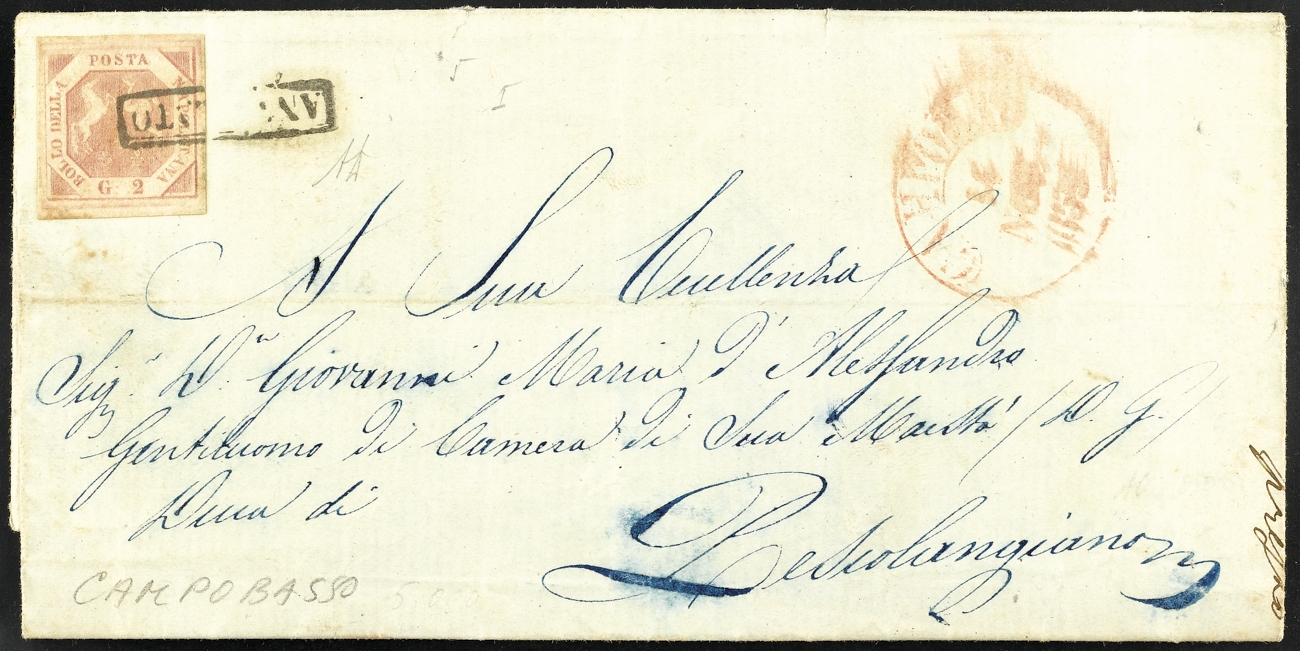 POSTA
NAPOLETANA
BOLLO DELLA
G. 2
AN TO
1858
A Sua Eccellenza
Sig.r D.n Giovanni Maria d'Alessandro
Gentiluomo di Camera di Sua Maestà (D. G.)
Duca di
Pescolangiano
CAMPOBASSO